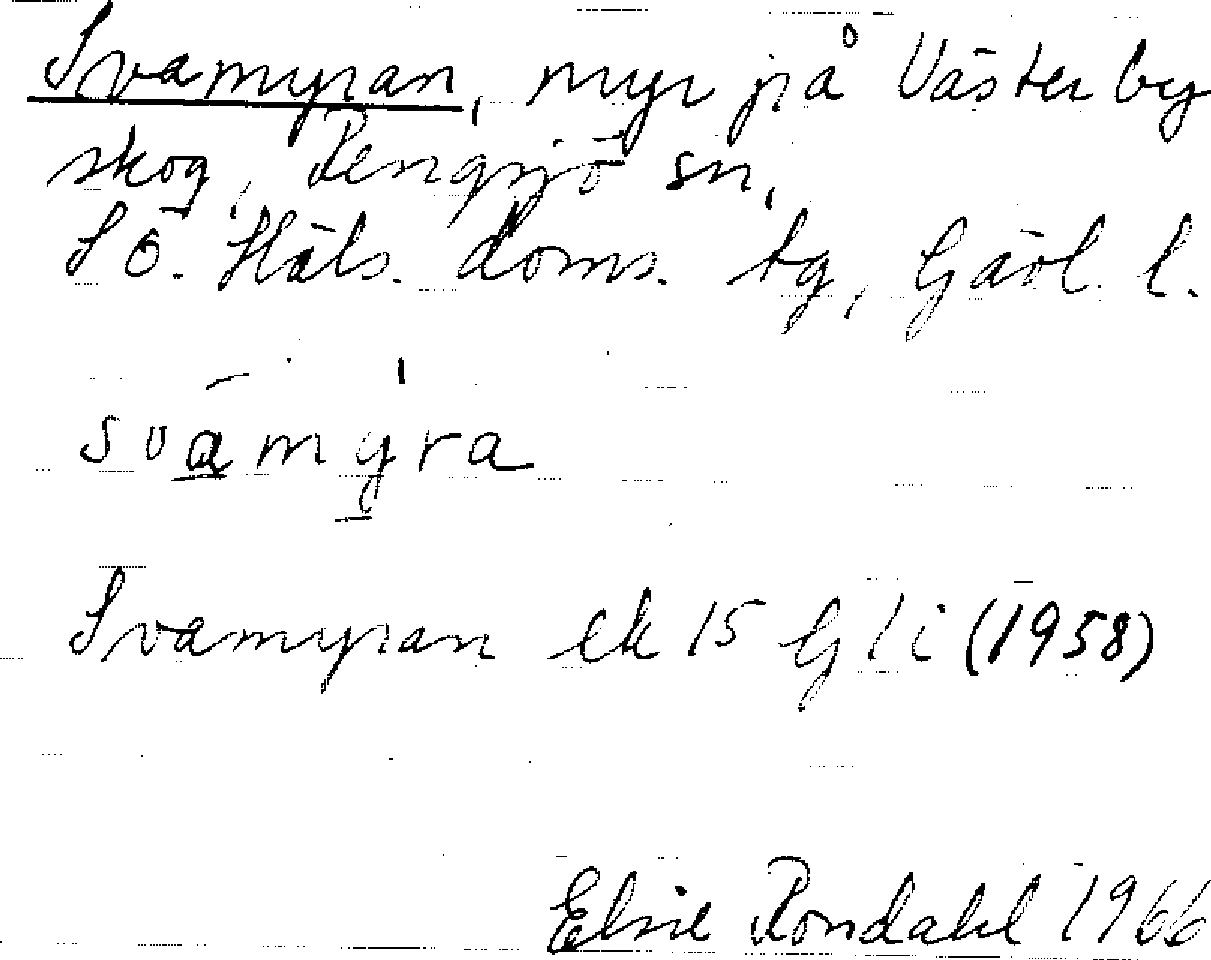 Svamyran, myr på Västerby
skog, Rengsjö sn,
SÖ. Häls. doms. tg, Gävl. l.
svāmy̱ra
Svamyran ek 15 G 1 i (1958)
Elsie Rondahl 1966